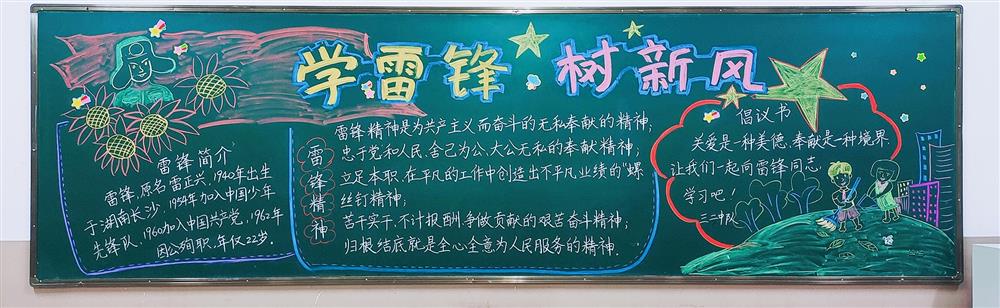 学雷锋 树新风
雷锋简介
雷锋,原名雷正兴,1940年出生
于湖南长沙,1954年加入中国少年
先锋队,1960加入中国共产党,1962年
因公殉职,年仅22岁。
雷锋精神
雷锋精神是为共产主义而奋斗的无私奉献的精神;
忠于党和人民、舍己为公、大公无私的奉献精神;
立足本职、在平凡的工作中创造出不平凡业绩的“螺
丝钉精神;
苦干实干、不计报酬、争做贡献的艰苦奋斗精神;
归根结底就是全心全意为人民服务的精神.
倡议书
关爱是一种美德,奉献是一种境界.
让我们一起向雷锋同志,
学习吧!
三二中队